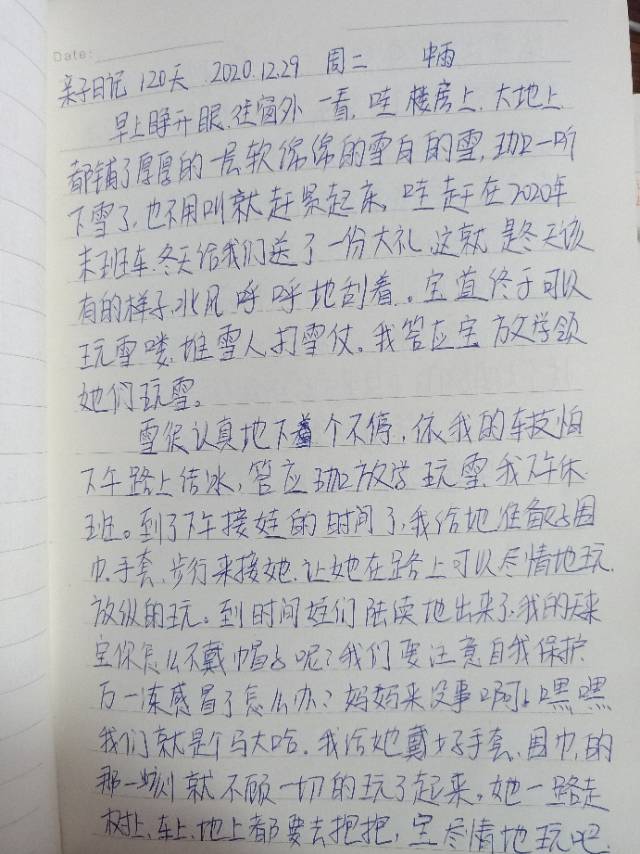 Date:
亲子日记 120天 2020.12.29 周二 中雨
早上睁开眼,往窗外一看,哇 楼房上,大地上
都铺了厚厚的一层软绵绵的雪白的雪,珈一听
下雪了,也不用叫就赶紧起床,哇 赶在2020年
末班车,冬天给我们送了一份大礼,这就是冬天该
有的样子,北风呼呼地刮着。宝宜终于可以
玩雪喽,堆雪人,打雪仗。我答应宝 放学领
她们玩雪。
雪很认真地下着个不停,依我的车技怕
下午路上结冰,答应珈放学玩雪,我下午休
班。到了下午接娃的时间了,我给她准备好围
巾,手套,步行来接她,让她在路上可以尽情地玩,
放纵的玩。到时间娃们陆续地出来了,我的天来
宝你怎么不戴帽子呢?我们要注意自我保护
万一冻感冒了怎么办?妈妈来没事啊,嘿嘿
我们就是个马大哈,我给她戴好手套,围巾,的
那一刻就不顾一切的玩了起来。她一路走
树上,车上,地上都要去把把,宝尽情地玩吧